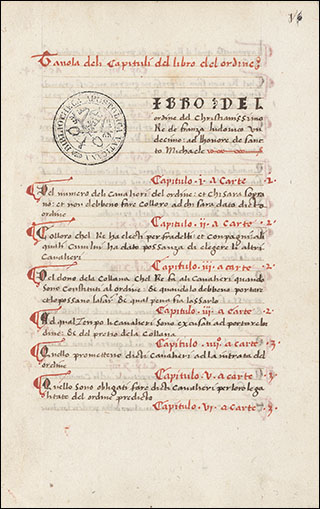 Tavola deli Capituli del libro del ordine
IBRO DEL
ordine del Christianissimo
Re de franza ludovico un
decimo: ad honore de sanc
to Michaele
BIBLIOTHECA APOSTOLICA VATICANA
Capitulo · I · a Carte · 2 ·
Del numero deli Cavalieri del ordine: et chi sara sopra
no: et non debbeno fare Colloro ad chi sara dato dicto
ordine
Capitulo · ii · a Carte · 2 ·
Colloro chel Re ha electi per fradelli et Compagni: ali
quali Cavalieri ha dato possanza di elegere li altri
Cavalieri
Capitulo · iij · a carte · 2 ·
Del dono dela Collana chel Re fa ali Cavalieri quando
sono Constituti al ordine: et quando lo debbeno portare
et lo possano lasar: et qual pena fia lassarlo
Capitulo · iiij · a Carte · 2 ·
Ad qual Tenpo li Cavalieri sono excusati ad portare lor
dine: et del pretio dela Collana
a Carte · 3 ·
Quello promettono dicti Cavalieri ad la intrata del
ordine
Capitulo · V · a carte · 3 ·
Quello sono obligati fare dicti Cavalieri per lor lega
litate del ordine predicto
Capitulo · VI · a Carte · 3 ·